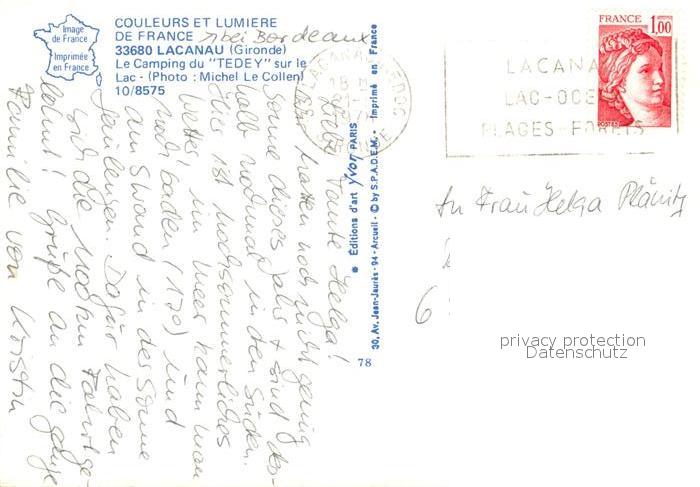 Image
de France
Imprimée
en France
COULEURS ET LUMIERE
DE FRANCE bei Bordeaux
33680 LACANAU (Gironde)
Le Camping du "TEDEY" sur le
Lac - (Photo : Michel Le Collen)
10/8575
Liebe Tante Helga!
Wir hatten noch nicht genug
Sonne dieses Jahr + sind des-
halb nochmal in den Süden.
Hier ist hochsommerliches
Wetter, im Meer kann man
noch baden (17°) und
am Strand in der Sonne
faulenzen. Dafür haben
sich die Fahrt ge-
lohnt! Grüße an die ganze
Familie von Kirstin
Editions d'art Yvon PARIS
30, Av. Jean-Jaurès - 94 - Arcueil - © by S.P.A.D.E.M. - Imprimé en France
78
LACANAU
18
GIRONDE
LACANA
LAC-OCE
PLAGES-FORETS
FRANCE 1,00
POSTES
An Frau Helga Plänitz
6
privacy protection
Datenschutz